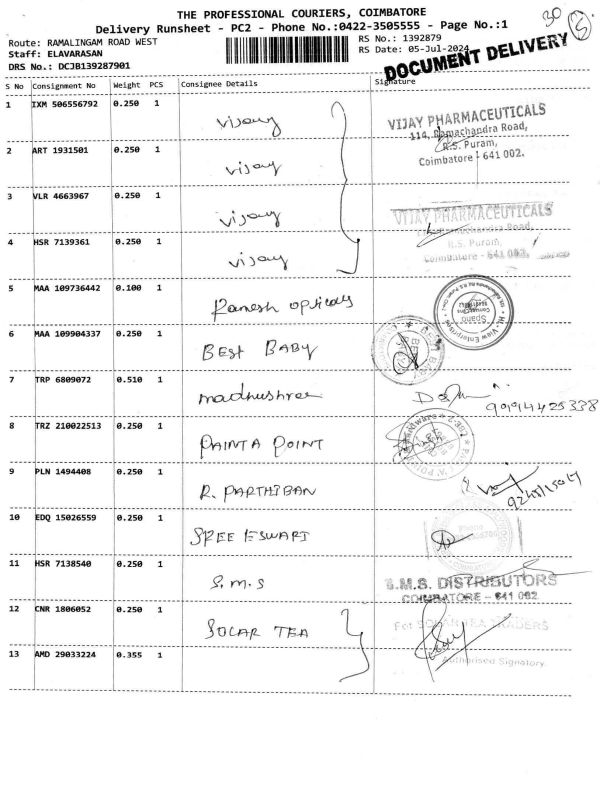 THE PROFESSIONAL COURIERS, COIMBATORE
Delivery Runsheet - PC2 - Phone No.:0422-3505555 - Page No.:1
30
5
Route: RAMALINGAM ROAD WEST
RS No.: 1392879
Staff: ELAVARASAN
RS Date: 05-Jul-2024
DRS No.: DCJB139287901
DOCUMENT DELIVERY
S No Consignment No Weight PCS Consignee Details Signature
1 IXM 506556792 0.250 1 vijay
VIJAY PHARMACEUTICALS
114, Ramachandra Road,
R.S. Puram,
Coimbatore - 641 002.
2 ART 1931501 0.250 1 vijay
3 VLR 4663967 0.250 1 vijay
VIJAY PHARMACEUTICALS
Ramachandra Road,
R.S. Puram,
Coimbatore - 641 002.
4 HSR 7139361 0.250 1 vijay
5 MAA 109736442 0.100 1 Ramesh opticals
6 MAA 109904337 0.250 1 BEST BABY
7 TRP 6809072 0.510 1 madhushree
8 TRZ 210022513 0.250 1 PAINTA POINT
9 PLN 1494408 0.250 1 R. PARTHIBAN
10 EDQ 15026559 0.250 1 SREE ESWARI
11 HSR 7138540 0.250 1 S.M.S
S.M.S. DISTRIBUTORS
COIMBATORE - 641 002
12 CNR 1806052 0.250 1 SOLAR TEA
For SOLAR TEA TRADERS
13 AMD 29033224 0.355 1
Authorised Signatory